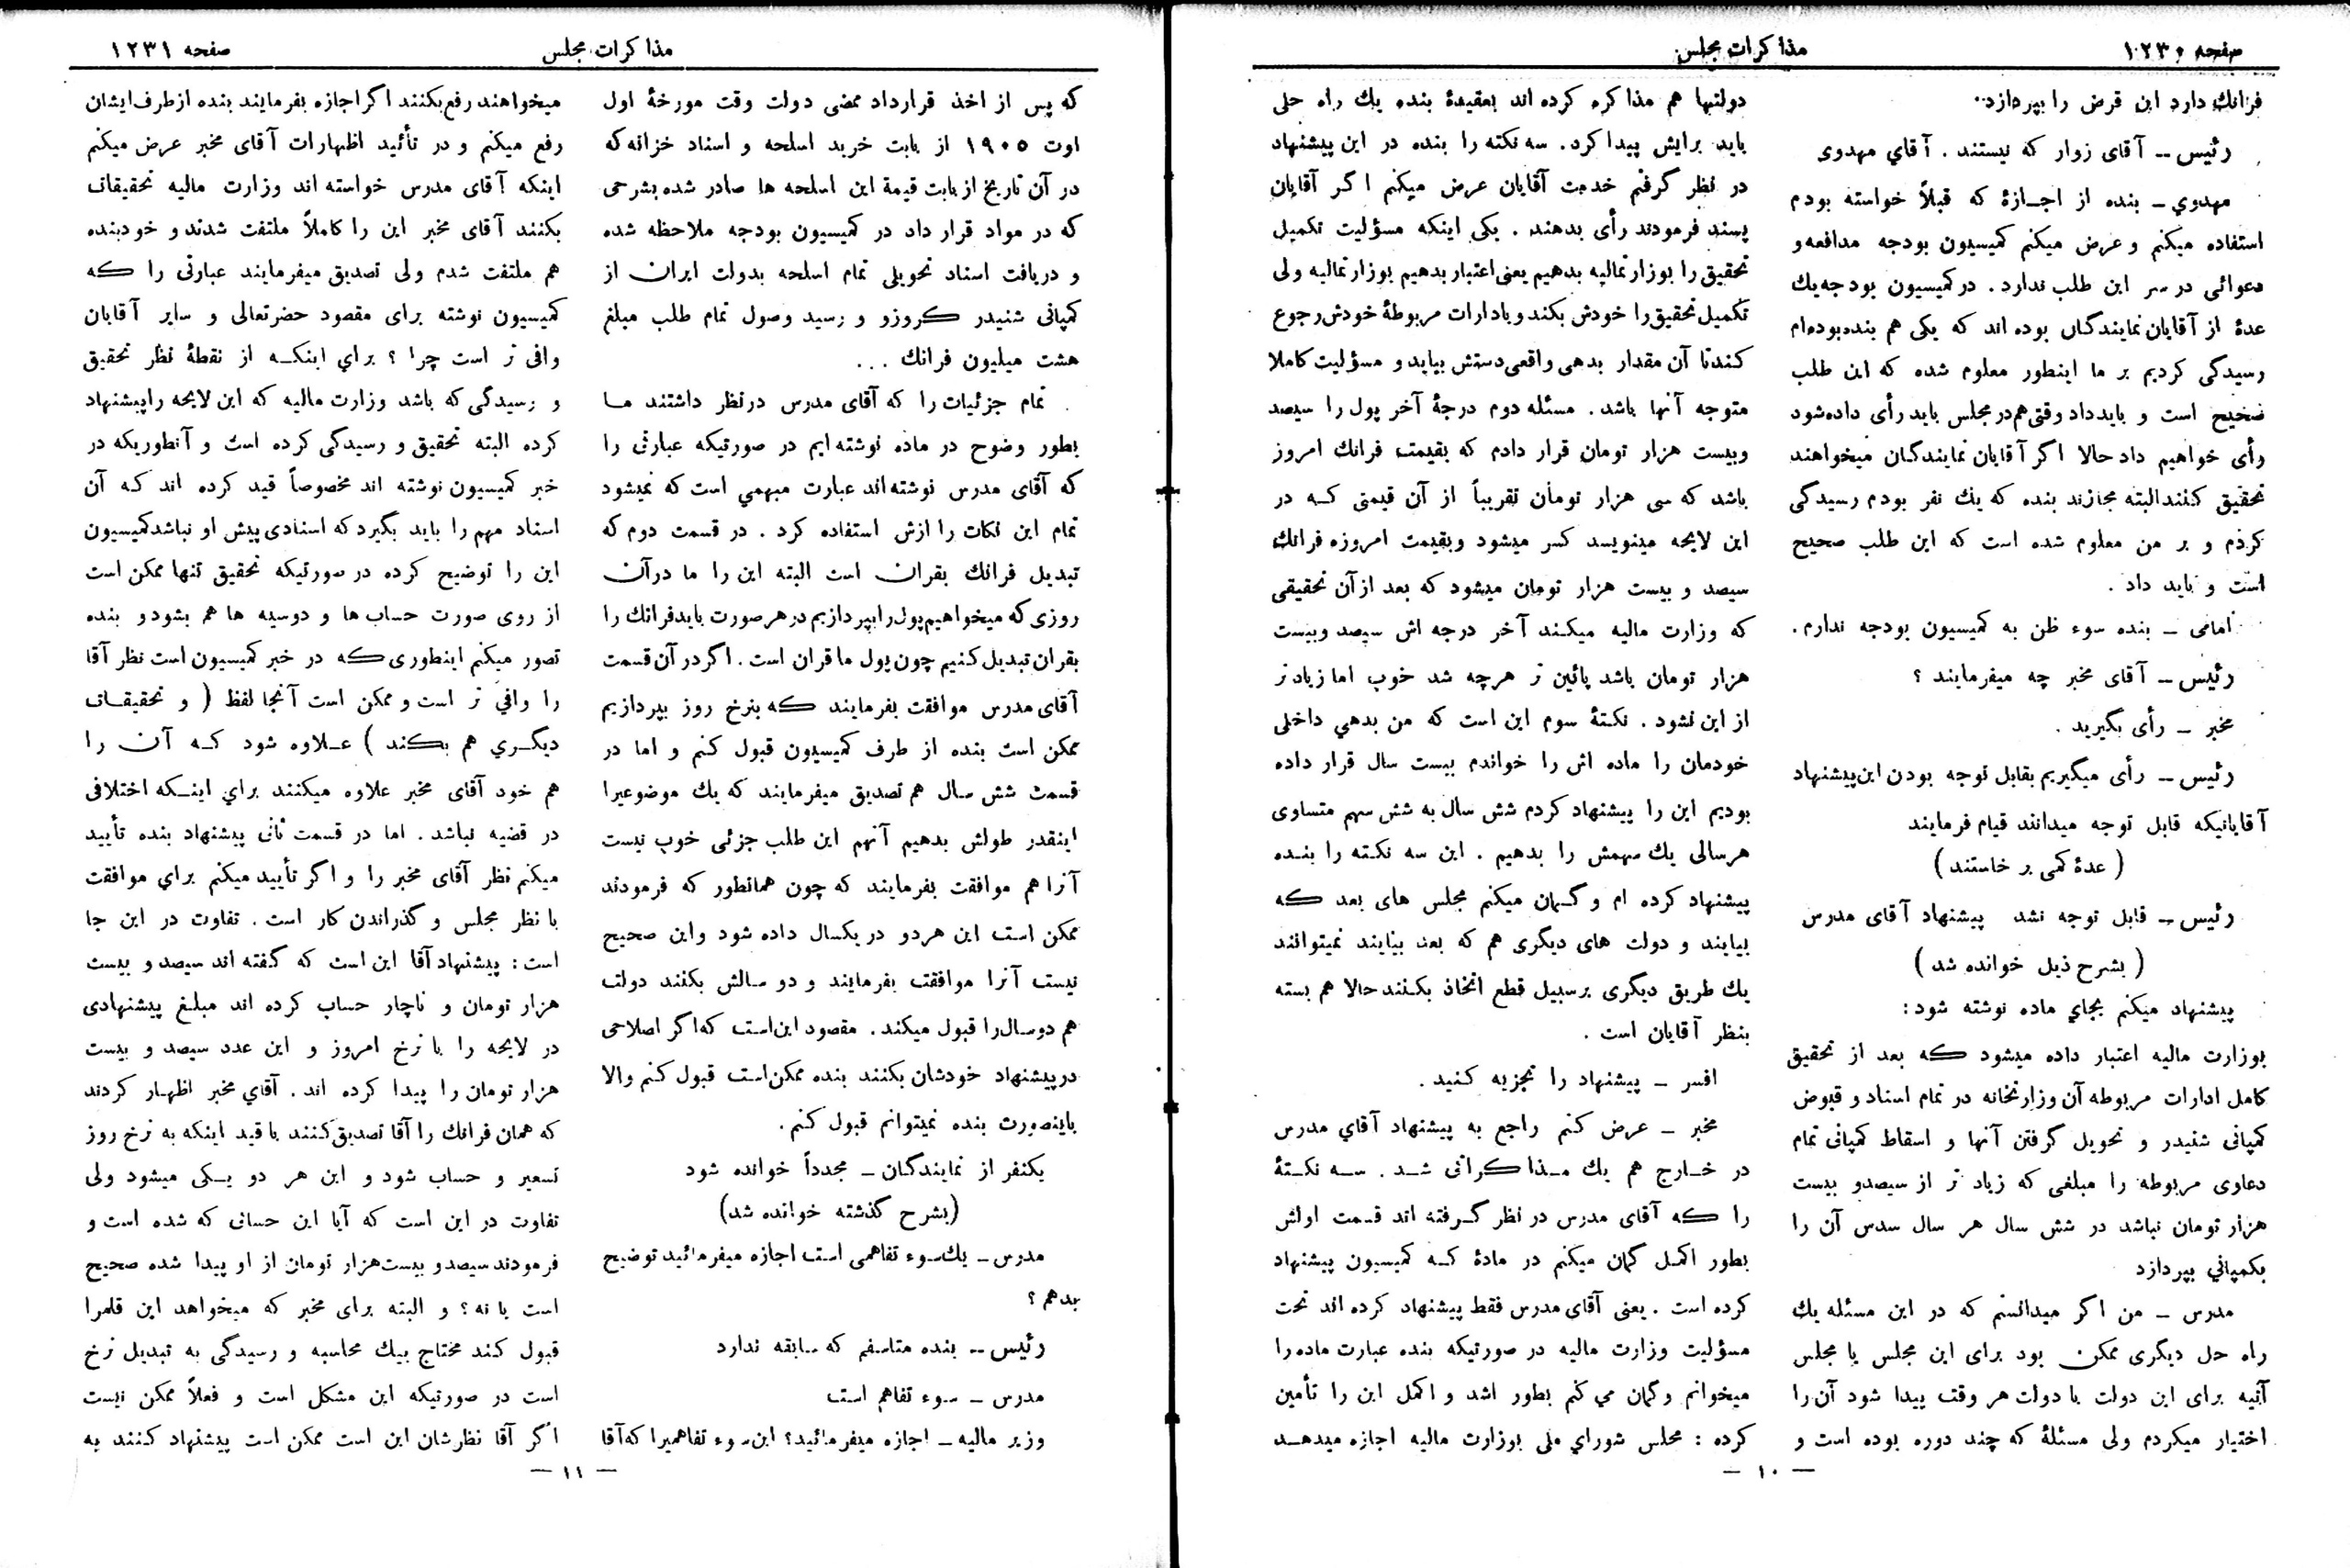 صفحه ۱۲۳۰
مذاکرات مجلس
فرانك دارد این قرض را بپردازد.
رئیس — آقای زوار که نیستند . آقاي مهدوی
مهدوي — بنده از اجازهٔ که قبلاً خواسته بودم
استفاده میکنم و عرض میکنم کمیسیون بودجه مدافعه و
دعوائی در سر این طلب ندارد . در کمیسیون بودجه یك
عدهٔ از آقایان نمایندگان بوده اند که یکی هم بنده بوده ام
رسیدگی کردیم بر ما اینطور معلوم شده که این طلب
صحیح است و باید داد وقتی هم در مجلس باید رأی داده شود
رأی خواهیم داد حالا اگر آقایان نمایندگان میخواهند
تحقیق کنند البته مجازند بنده که یك نفر بودم رسیدگی
کردم و بر من معلوم شده است که این طلب صحیح
است و باید داد .
امامی — بنده سوء ظن به کمیسیون بودجه ندارم .
رئیس — آقای مخبر چه میفرمایند ؟
مخبر — رأی بگیرید .
رئیس — رأی میگیریم بقابل توجه بودن این پیشنهاد
آقایانیکه قابل توجه میدانند قیام فرمایند
( عدهٔ کمی بر خاستند )
رئیس — قابل توجه نشد پیشنهاد آقای مدرس
( بشرح ذیل خوانده شد )
پیشنهاد میکنم بجاي ماده نوشته شود :
بوزارت مالیه اعتبار داده میشود که بعد از تحقیق
کامل ادارات مربوطه آن وزارتخانه در تمام اسناد و قبوض
کمپانی شنیدر و تحویل گرفتن آنها و اسقاط کمپانی تمام
دعاوی مربوطه را مبلغی که زیاد تر از سیصدو بیست
هزار تومان نباشد در شش سال هر سال سدس آن را
بکمپاني بپردازد
مدرس — من اگر میدانستم که در این مسئله یك
راه حل دیگری ممکن بود برای این مجلس یا مجلس
آتیه برای این دولت یا دولت هر وقت پیدا شود آن را
اختیار میکردم ولی مسئلهٔ که چند دوره بوده است و
دولتها هم مذاکره کرده اند بعقیدهٔ بنده یك راه حلی
باید برایش پیدا کرد . سه نکته را بنده در این پیشنهاد
در نظر گرفتم خدمت آقایان عرض میکنم اگر آقایان
پسند فرمودند رأی بدهند . یکی اینکه مسؤلیت تکمیل
تحقیق را بوزارتمالیه بدهیم یعنی اعتبار بدهیم بوزارتمالیه ولی
تکمیل تحقیق را خودش بکند و بادارات مربوطهٔ خودش رجوع
کند تا آن مقدار بدهی واقعی دستش بیاید و مسؤلیت کاملا
متوجه آنها باشد . مسئله دوم درجهٔ آخر پول را سیصد
وبیست هزار تومان قرار دادم که بقیمت فرانك امروز
باشد که سی هزار تومان تقریباً از آن قیمتی که در
این لایحه مینویسد کسر میشود و بقیمت امروزه فرانك
سیصد و بیست هزار تومان میشود که بعد از آن تحقیقی
که وزارت مالیه میکند آخر درجه اش سیصد وبیست
هزار تومان باشد پائین تر هرچه شد خوب اما زیاد تر
از این نشود . نکتهٔ سوم این است که من بدهي داخلی
خودمان را ماده اش را خواندم بیست سال قرار داده
بودیم این را پیشنهاد کردم شش سال به شش سهم متساوی
هر سالی یك سهمش را بدهیم . این سه نکته را بنده
پیشنهاد کرده ام و گمان میکنم مجلس های بعد که
بیایند و دولت های دیگری هم که بعد بیایند نمیتوانند
یك طریق دیگری بر سبیل قطع اتخاذ بکنند حالا هم بسته
بنظر آقایان است .
افسر — پیشنهاد را تجزیه کنید .
مخبر — عرض کنم راجع به پیشنهاد آقاي مدرس
در خارج هم یك مذاکراتی شد . سه نکتهٔ
را که آقای مدرس در نظر گرفته اند قسمت اولش
بطور اکمل گمان میکنم در مادهٔ که کمیسیون پیشنهاد
کرده است . یعنی آقای مدرس فقط پیشنهاد کرده اند تحت
مسؤلیت وزارت مالیه در صورتیکه بنده عبارت ماده را
میخوانم و گمان می کنم بطور اشد و اکمل این را تأمین
کرده : مجلس شورای ملی بوزارت مالیه اجازه میدهد
— ۱۰ —
مذاکرات مجلس
صفحه ۱۲۳۱
که پس از اخذ قرارداد ممضی دولت وقت مورخهٔ اول
اوت ۱۹۰۵ از بابت خرید اسلحه و اسناد خزانه که
در آن تاریخ از بابت قیمة این اسلحه ها صادر شده بشرحی
که در مواد قرار داد در کمیسیون بودجه ملاحظه شده
و دریافت اسناد تحویلی تمام اسلحه بدولت ایران از
کمپانی شنیدر کروزو و رسید وصول تمام طلب مبلغ
هشت میلیون فرانك ...
تمام جزئیات را که آقای مدرس درنظر داشتند ما
بطور وضوح در ماده نوشته ایم در صورتیکه عبارتی را
که آقای مدرس نوشته اند عبارت مبهمي است که نمیشود
تمام این نکات را ازش استفاده کرد . در قسمت دوم که
تبدیل فرانك بقران است البته این را ما درآن
روزی که میخواهیم پول را بپردازیم در هر صورت باید فرانك را
بقران تبدیل کنیم چون پول ما قران است . اگر در آن قسمت
آقای مدرس موافقت بفرمایند که بنرخ روز بپردازیم
ممکن است بنده از طرف کمیسیون قبول کنم و اما در
قسمت شش سال هم تصدیق میفرمایند که یك موضوعیرا
اینقدر طولش بدهیم آنهم این طلب جزئی خوب نیست
آنرا هم موافقت بفرمایند که چون همانطور که فرمودند
ممکن است این هردو در یکسال داده شود واین صحیح
نیست آنرا موافقت بفرمایند و دو سالش بکنند دولت
هم دو سال را قبول میکند . مقصود این است که اگر اصلاحی
در پیشنهاد خودشان بکنند بنده ممکن است قبول کنم والا
باینصورت بنده نمیتوانم قبول کنم .
یکنفر از نمایندگان — مجدداً خوانده شود
(بشرح گذشته خوانده شد)
مدرس — یك سوء تفاهمی است اجازه میفرمائید توضیح
بدهم ؟
رئیس — بنده متاسفم که سابقه ندارد
مدرس — سوء تفاهم است
وزیر مالیه — اجازه میفرمائید؟ این سوء تفاهمیرا که آقا
میخواهند رفع بکنند اگر اجازه بفرمایند بنده از طرف ایشان
رفع میکنم و در تأئید اظهارات آقای مخبر عرض میکنم
اینکه آقای مدرس خواسته اند وزارت مالیه تحقیقات
بکنند آقای مخبر این را کاملاً ملتفت شدند و خود بنده
هم ملتفت شدم ولی تصدیق میفرمایند عبارتی را که
کمیسیون نوشته برای مقصود حضرتعالی و سایر آقایان
وافی تر است چرا ؟ براي اینکه از نقطهٔ نظر تحقیق
و رسیدگی که باشد وزارت مالیه که این لایحه را پیشنهاد
کرده البته تحقیق و رسیدگی کرده است و آنطوریکه در
خبر کمیسیون نوشته اند مخصوصاً قید کرده اند که آن
اسناد مهم را باید بگیرد که اسنادی پیش او نباشد کمیسیون
این را توضیح کرده در صورتیکه تحقیق تنها ممکن است
از روی صورت حساب ها و دوسیه ها هم بشود و بنده
تصور میکنم اینطوری که در خبر کمیسیون است نظر آقا
را وافي تر است و ممکن است آنجا لفظ ( و تحقیقات
دیگري هم بکند ) علاوه شود که آن را
هم خود آقای مخبر علاوه میکنند براي اینکه اختلافی
در قضیه نباشد . اما در قسمت ثانی پیشنهاد بنده تأیید
میکنم نظر آقای مخبر را و اگر تأیید میکنم براي موافقت
با نظر مجلس و گذراندن کار است . تفاوت در این جا
است : پیشنهاد آقا این است که گفته اند سیصد و بیست
هزار تومان و ناچار حساب کرده اند مبلغ پیشنهادی
در لایحه را با نرخ امروز و این عدد سیصد و بیست
هزار تومان را پیدا کرده اند . آقاي مخبر اظهار کردند
که همان فرانك را آقا تصدیق کنند با قید اینکه به نرخ روز
تسعیر و حساب شود و این هر دو یکی میشود ولی
تفاوت در این است که آیا این حسابی که شده است و
فرمودند سیصدو بیست هزار تومان از او پیدا شده صحیح
است یا نه ؟ و البته برای مخبر که میخواهد این قلمرا
قبول کند محتاج بیك محاسبه و رسیدگی به تبدیل نرخ
است در صورتیکه این مشکل است و فعلاً ممکن نیست
اگر آقا نظرشان این است ممکن است پیشنهاد کنند به
— ۱۱ —